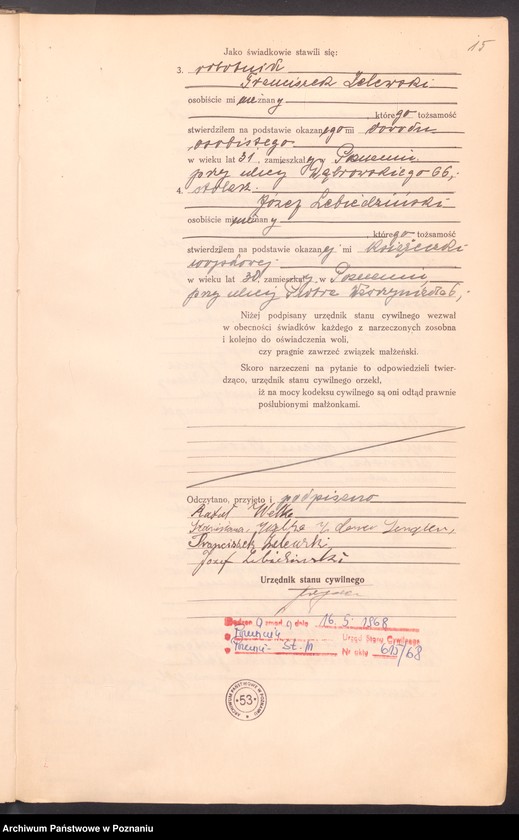 15
Jako świadkowie stawili się:
3. robotnik
Franciszek Zelewski
osobiście mi nieznany
którego tożsamość
stwierdziłem na podstawie okazanego mi dowodu
osobistego
w wieku lat 31, zamieszkały w Poznaniu
przy ulicy Dąbrowskiego 66,
4. stolarz
Józef Lebiedziński
osobiście mi nieznany
którego tożsamość
stwierdziłem na podstawie okazanej mi książeczki
wojskowej
w wieku lat 38, zamieszkały w Poznaniu,
przy ulicy Piotra Wawrzyniaka 6,
Niżej podpisany urzędnik stanu cywilnego wezwał
w obecności świadków każdego z narzeczonych zosobna
i kolejno do oświadczenia woli,
czy pragnie zawrzeć związek małżeński.
Skoro narzeczeni na pytanie to odpowiedzieli twier-
dząco, urzędnik stanu cywilnego orzekł,
iż na mocy kodeksu cywilnego są oni odtąd prawnie
poślubionymi małżonkami.
Odczytano, przyjęto i podpisano
Welke
Stanisława Welke z domu
Franciszek Zelewski
Józef Lebiedziński
Urzędnik stanu cywilnego
dnia 16. 5. 1968
Poznaniu Urząd Stanu Cywilnego
Poznań - St. M Nr aktu 615/68
ARCHIWUM PAŃSTWOWE W POZNANIU
53
Archiwum Państwowe w Poznaniu